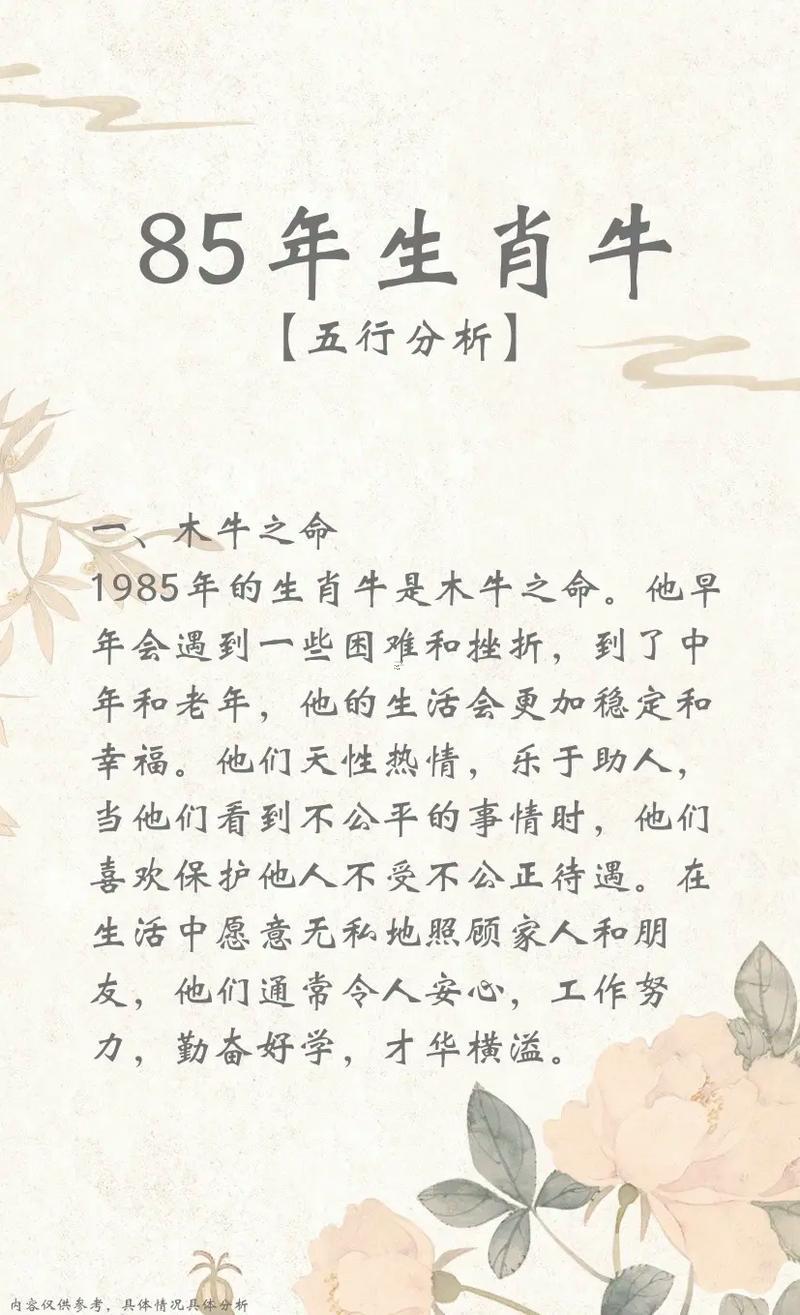 85年生肖牛
【五行分析】
一、木牛之命
1985年的生肖牛是木牛之命。他早
年会遇到一些困难和挫折，到了中
年和老年，他的生活会更加稳定和
幸福。他们天性热情，乐于助人，
当他们看到不公平的事情时，他们
喜欢保护他人不受不公正待遇。在
生活中愿意无私地照顾家人和朋
友，他们通常令人安心，工作努
力，勤奋好学，才华横溢。
内容仅供参考，具体情况具体分析